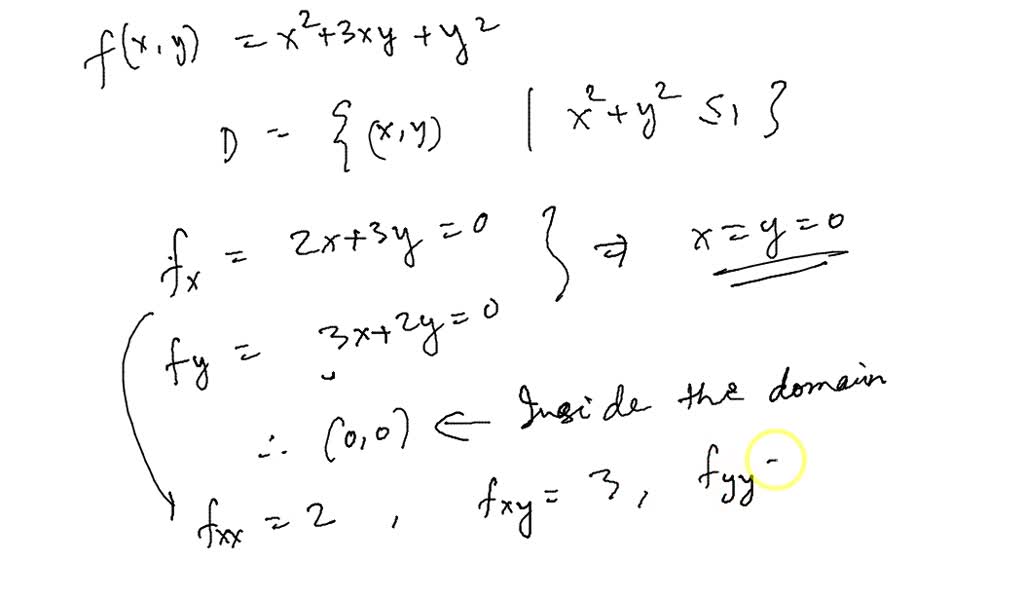 f(x,y) = x²+3xy+y²
D = {(x,y) | x²+y² ≤1}
fx = 2x+3y=0 } ⇒ x=y=0
fy = 3x+2y=0
∴ (0,0) ← Inside the domain
fxx = 2 , fxy = 3, fyy =